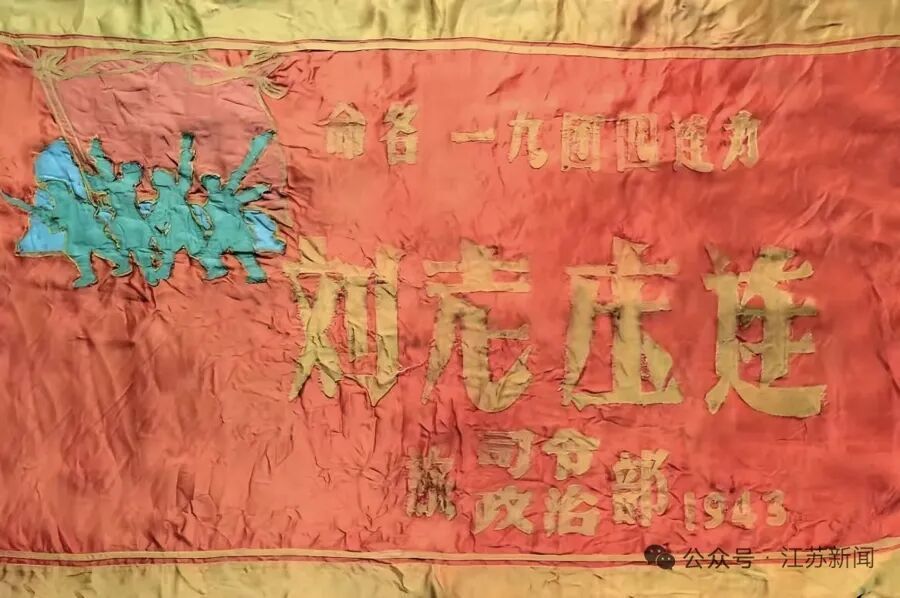 命名 一九团四连为
刘老庄连
司令
政治部 1943
公众号 · 江苏新闻